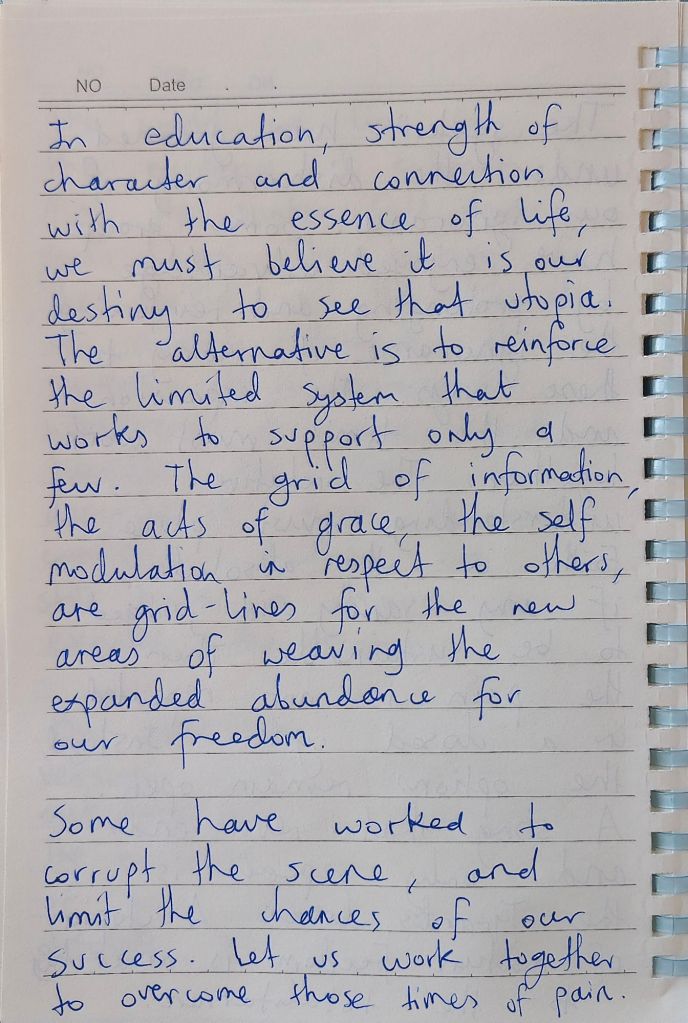 NO Date . .
In education, strength of
character and connection
with the essence of life,
we must believe it is our
destiny to see that utopia.
The alternative is to reinforce
the limited system that
works to support only a
few. The grid of information,
the acts of grace, the self
modulation in respect to others,
are grid-lines for the new
areas of weaving the
expanded abundance for
our freedom.
Some have worked to
corrupt the scene, and
limit the chances of our
success. Let us work together
to overcome those times of pain.